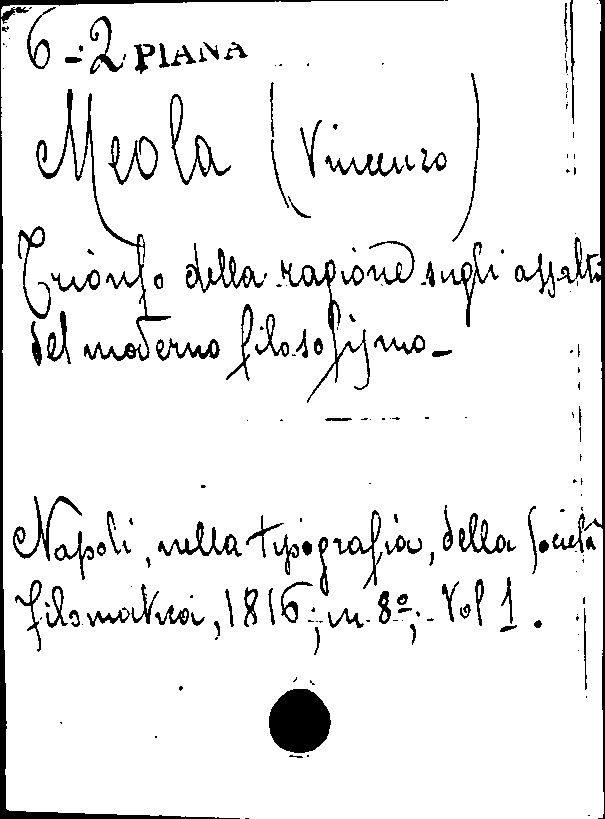 6-2 PIANA
Meola (Vincenzo)
Trionfo della ragione sugli assalti
del moderno filosofismo-
Napoli, nella tipografia, della Società
filomatica, 1816; in 8º; Vol 1.